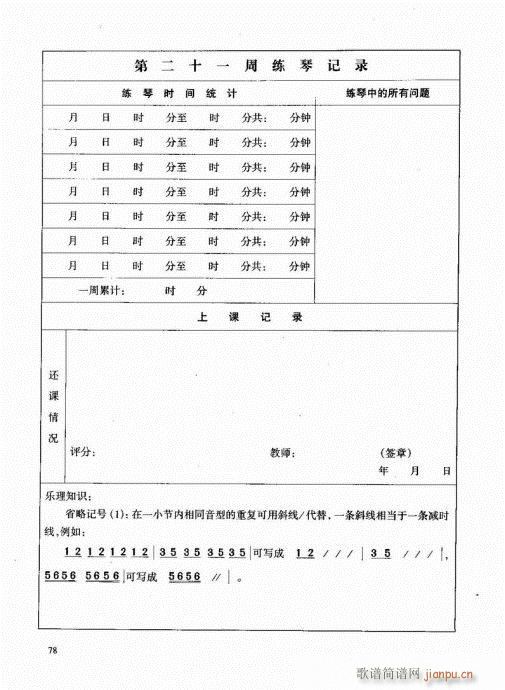 第二十一周练琴记录
练琴时间统计 练琴中的所有问题
月 日 时 分至 时 分共: 分钟
月 日 时 分至 时 分共: 分钟
月 日 时 分至 时 分共: 分钟
月 日 时 分至 时 分共: 分钟
月 日 时 分至 时 分共: 分钟
月 日 时 分至 时 分共: 分钟
月 日 时 分至 时 分共: 分钟
一周累计: 时 分
上课记录
还课情况
评分: 教师: (签章)
年 月 日
乐理知识:
省略记号(1):在一小节内相同音型的重复可用斜线/代替,一条斜线相当于一条减时
线,例如:
1 2 1 2 1 2 1 2 | 3 5 3 5 3 5 3 5 | 可写成 1 2 / / / | 3 5 / / / |,
5 6 5 6 5 6 5 6 | 可写成 5 6 5 6 // | 。
78
歌谱简谱网
jianpu.cn